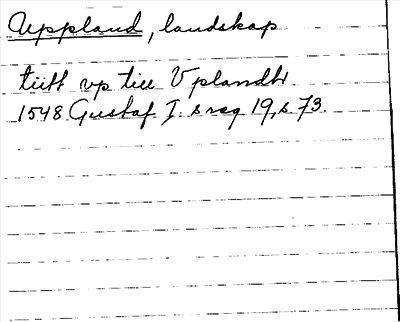 Uppland, landskap
titt vp till Vplandh
1548 Gustaf I:s reg 19, s. 73.